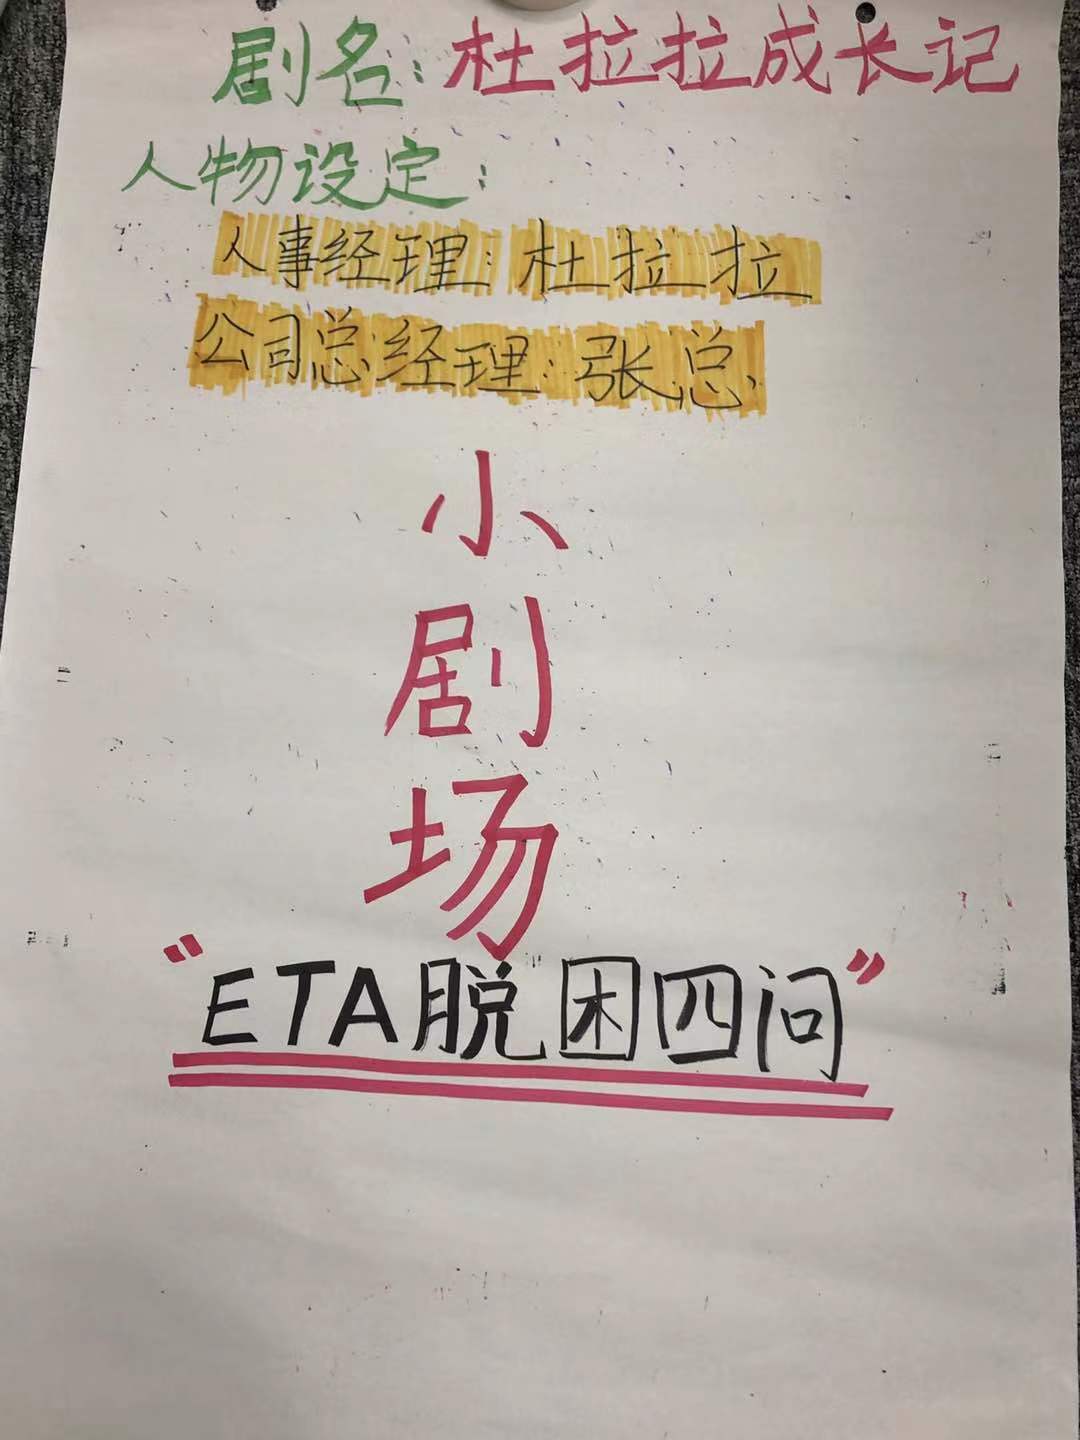 剧名:杜拉拉成长记
人物设定:
人事经理:杜拉拉
公司总经理:张总
小
剧
场
“ETA脱困四问”